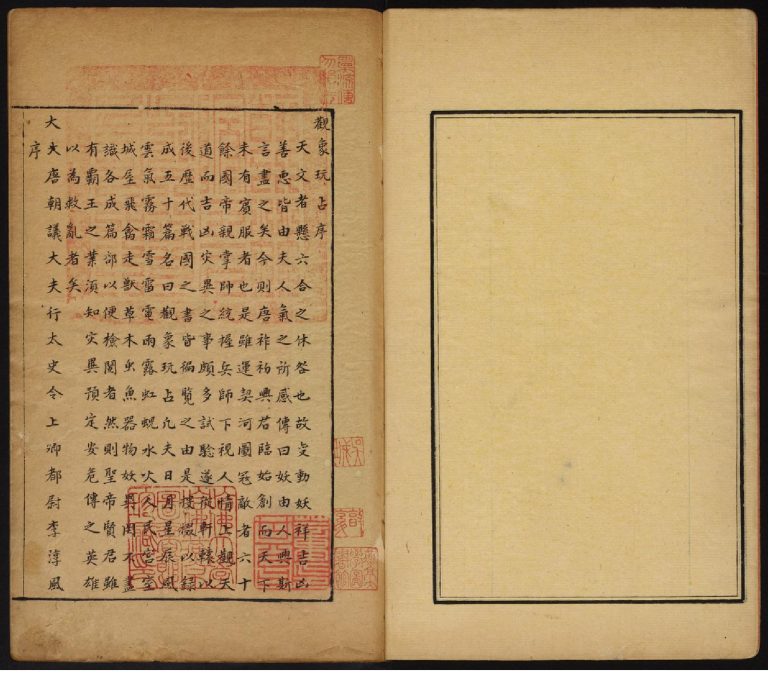 觀象玩占序
天文者懸六合之休咎也故变動妖祥吉凶
善惡皆由夫人氣之所感傳曰妖由人興斯
言盡之矣今則唐祚初興君臨始創而天下
未有賓服者也是雖運契河圖冦敵者六十
餘國帝親掌師統握兵師下視人情上觀天
道而吉凶灾異之事頗多試驗遂被軒轅以
後歷代戰國之書皆徧覽之由是採綴以錄
成五十篇名曰觀象玩占凢夫日月星辰風
雲氣霧霜雪雷電雨露虹蜺水火人民宮室
城壘飛禽走獸草木虫魚器物妖異罔不盡
識各成篇部以便檢閱者然則聖帝賢君雖
有霸王之業須知灾異預定安危傳之英雄
以為救亂者矣
大唐朝議大夫行太史令上卿都尉李淳風
序